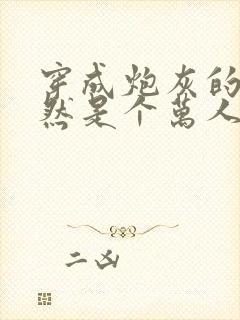 穿成炮灰的
然是个萬人
二凶